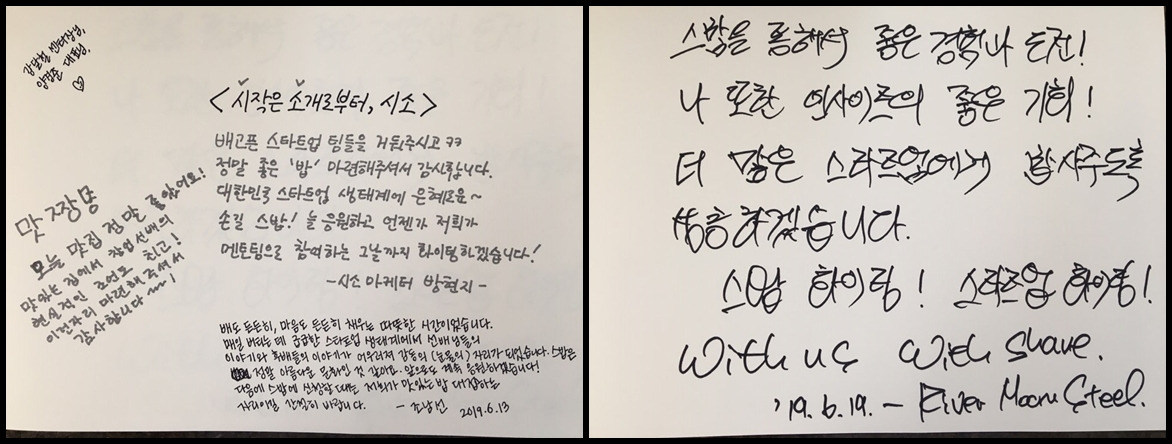 강달철 센터장님,
양경준 대표님,
<시작은 소개로부터, 시소>
배고픈 스타트업 팀들을 거둬주시고 ㅋㅋ
정말 좋은 '밥' 마련해주셔서 감사합니다.
대한민국 스타트업 생태계에 은혜로운~
손길 스밥! 늘 응원하고 언젠가 저희가
멘토팀으로 참여하는 그날까지 화이팅하겠습니다!
-시소 마케터 방현지-
맛짱몽
오늘 맛집 정말 좋았어요!
맛있는 집에서 창업선배의
현실적인 조언도 최고!
이런자리 마련해주셔서
감사합니다~~!
배도 든든히, 마음도 든든히 채우는 따뜻한 시간이었습니다.
매일 버티는 데 급급한 스타트업 생태계에서 선배님들의
이야기와 후배들의 이야기가 어우러져 감동의 (눈물의) 자리가 되었습니다. 스밥은
정말 아름다운 문화인 것 같아요. 앞으로도 계속 응원하겠습니다!
다음에 스밥에 신청할 때는 저희가 맛있는 밥 대접하는
자리이길 간절히 바랍니다. - 조남선 2019.6.13
스밥을 통해서 좋은 경험나 도전!
나 또한 인사이트의 좋은 기회!
더 많은 스타트업에게 밥사주도록
하겠습니다.
스밥 화이팅! 스타트업 화이팅!
With us With share.
'19.6.19. - River Moon Steel.